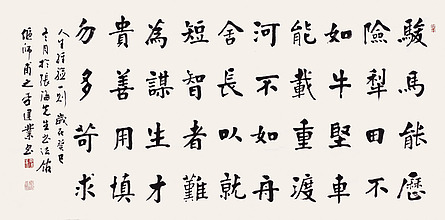 駿馬能歷
險犁田不
如牛堅車
能載重渡
河不如舟
舍長以就
短智者難
為謀生才
貴善用慎
勿多苛求
人生哲理一則歲在癸巳
月於張海先生書法館
偃師